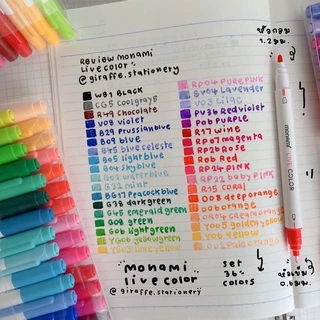 Review monami
live color :
@giraffe.stationery
WB1 Black
CG5 Coolgray5
R49 Chocolate
V09 violet
B29 Prussianblue
B09 blue
B45 blue celeste
B05 light blue
B04 sky blue
B03 waterblue
G32 mint
BG17 Peacock blue
G38 dark green
G45 emerald green
G08 green
G06 light green
YG06 yellowgreen
RP04 PURE PINK
BV04 Lavender
V03 Lilac
PV36 Redviolet
P06 Purple
R17 wine
RP07 magenta
RP26 Rose
R06 Red
RP24 PINK
RP22 baby PINK
R35 CORAL
O08 deep orange
O06 orange
Y005 golden yellow
Y06 yellow
หัวกลม
1.2 มม.
monami LIVE COLOR
monami
live color
@giraffe.stationery
set
36
colors